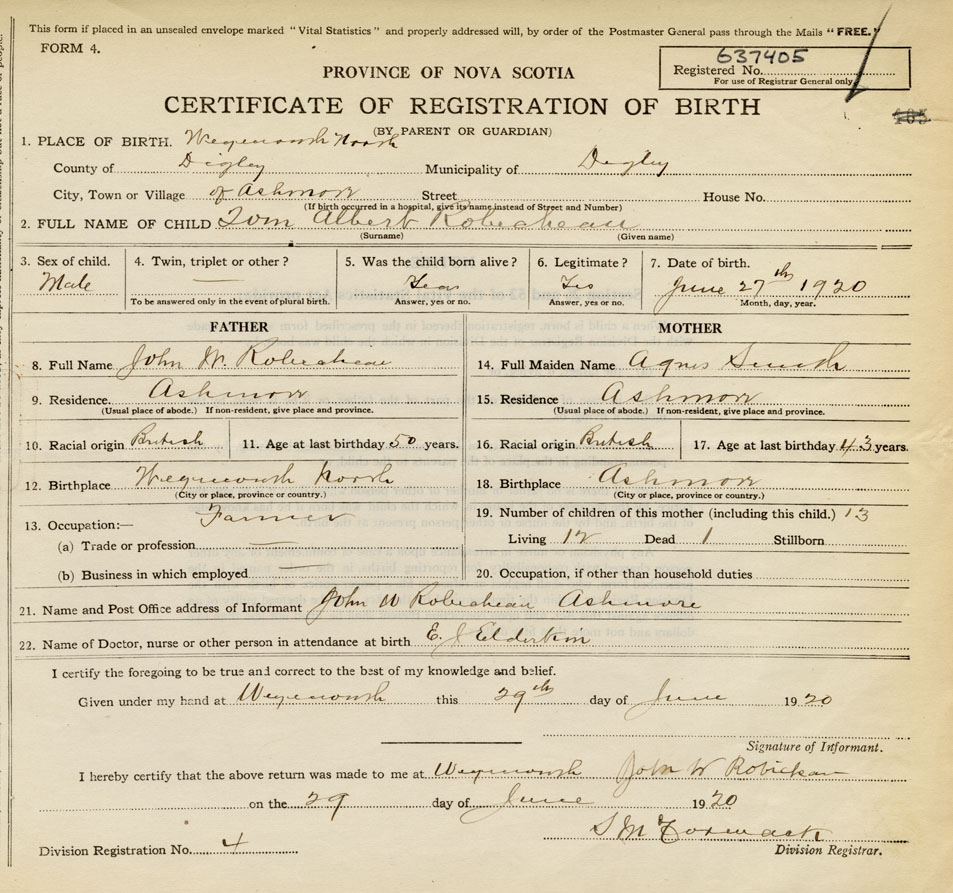 This form if placed in an unsealed envelope marked "Vital Statistics" and properly addressed will, by order of the Postmaster General pass through the Mails "FREE."
FORM 4.
637405
Registered No.
For use of Registrar General only
PROVINCE OF NOVA SCOTIA
CERTIFICATE OF REGISTRATION OF BIRTH
(BY PARENT OR GUARDIAN)
1. PLACE OF BIRTH. Weymouth North
County of Digby Municipality of Digby
City, Town or Village of Ashmore Street House No.
(If birth occurred in a hospital, give its name instead of Street and Number)
2. FULL NAME OF CHILD Tom Albert Robicheau
(Surname) (Given name)
3. Sex of child. 4. Twin, triplet or other? 5. Was the child born alive? 6. Legitimate? 7. Date of birth.
Male Yes Yes June 27th 1920
To be answered only in the event of plural birth. Answer, yes or no. Answer, yes or no. Month, day, year.
FATHER MOTHER
8. Full Name John W. Robicheau 14. Full Maiden Name Agnes Smith
9. Residence. Ashmore 15. Residence Ashmore
(Usual place of abode.) If non-resident, give place and province. (Usual place of abode.) If non-resident, give place and province.
10. Racial origin British 11. Age at last birthday 50 years. 16. Racial origin British 17. Age at last birthday 43 years.
12. Birthplace Weymouth North 18. Birthplace Ashmore
(City or place, province or country.) (City or place, province or country.)
13. Occupation:— Farmer 19. Number of children of this mother (including this child.) 13
(a) Trade or profession Living 12 Dead 1 Stillborn
(b) Business in which employed 20. Occupation, if other than household duties
21. Name and Post Office address of Informant John W Robicheau Ashmore
22. Name of Doctor, nurse or other person in attendance at birth E. J Elderkin
I certify the foregoing to be true and correct to the best of my knowledge and belief.
Given under my hand at Weymouth this 29th day of June 1920
Signature of Informant.
I hereby certify that the above return was made to me at Weymouth John W Robicheau
on the 29 day of June 1920
S McCormack
Division Registration No. 4 Division Registrar.